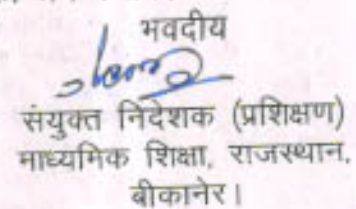 भवदीय
संयुक्त निदेशक (प्रशिक्षण)
माध्यमिक शिक्षा, राजस्थान,
बीकानेर।